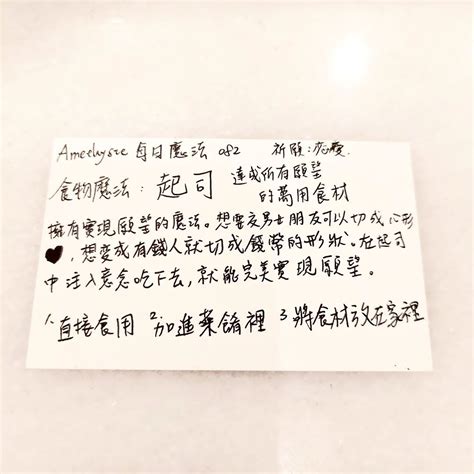 Amethyste 每日魔法 082 祈願:戀愛
食物魔法:起司 達成所有願望
的萬用食材
擁有實現願望的魔法。想要交男女朋友可以切成心形
♥,想变成有錢人就切成錢幣的形狀。在起司
中注入意念吃下去,就能完美實現願望。
1.直接食用 2.加進菜餚裡 3.將食材放在家裡